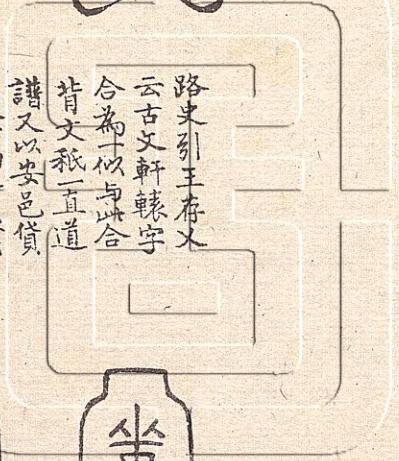 路史引王存乂
云古文軒轅字
合為一似与此合
背文秖一直道
譜又以安邑貸